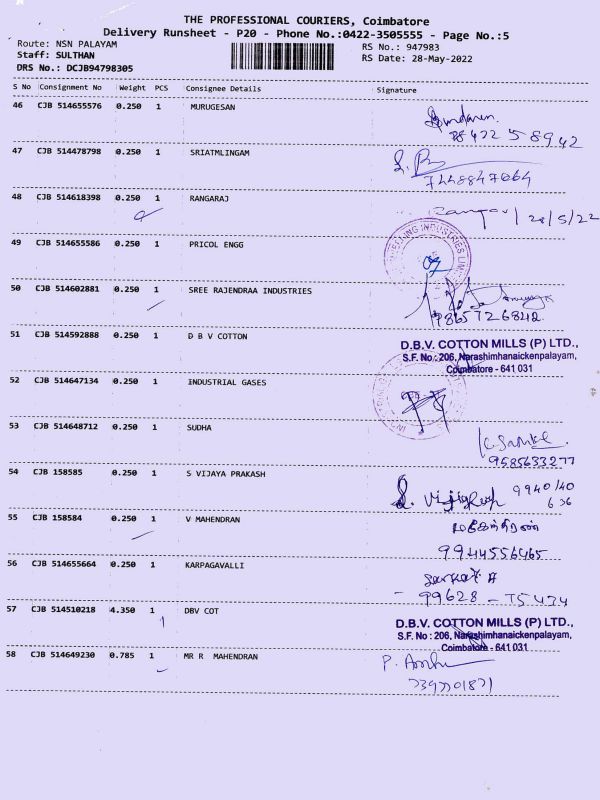 THE PROFESSIONAL COURIERS, Coimbatore
Delivery Runsheet - P20 - Phone No.:0422-3505555 - Page No.:5
Route: NSN PALAYAM RS No.: 947983
Staff: SULTHAN RS Date: 28-May-2022
DRS No.: DCJB94798305
S No Consignment No Weight PCS Consignee Details Signature
46 CJB 514655576 0.250 1 MURUGESAN
47 CJB 514478798 0.250 1 SRIATMLINGAM
7448847664
48 CJB 514618398 0.250 1 RANGARAJ
28/5/22
49 CJB 514655586 0.250 1 PRICOL ENGG
50 CJB 514602881 0.250 1 SREE RAJENDRAA INDUSTRIES
9865726842
51 CJB 514592888 0.250 1 D B V COTTON
D.B.V. COTTON MILLS (P) LTD.,
S.F. No.: 206, Narashimhanaickenpalayam,
Coimbatore - 641 031
52 CJB 514647134 0.250 1 INDUSTRIAL GASES
53 CJB 514648712 0.250 1 SUDHA
9585633277
54 CJB 158585 0.250 1 S VIJAYA PRAKASH
9940140
636
55 CJB 158584 0.250 1 V MAHENDRAN
மகேந்திரன்
9944556465
56 CJB 514655664 0.250 1 KARPAGAVALLI
99628 - 75434
57 CJB 514510218 4.350 1 DBV COT
D.B.V. COTTON MILLS (P) LTD.,
S.F. No : 206, Narashimhanaickenpalayam,
Coimbatore - 641 031
58 CJB 514649230 0.785 1 MR R MAHENDRAN